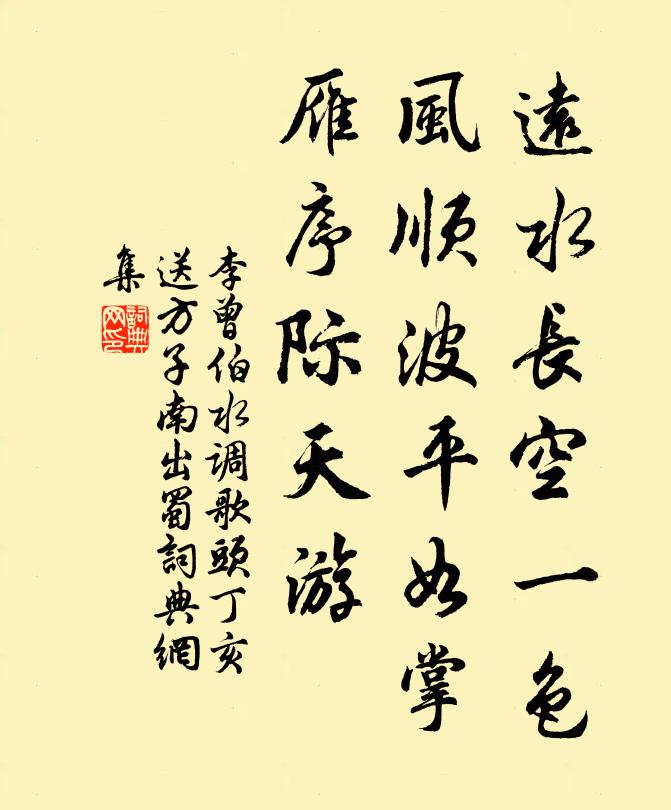 遠水長空一色
風順波平如掌
雁序际天游
李曾伯水调歌頭丁亥
送方子南出蜀詞典網
集
詞典
网印